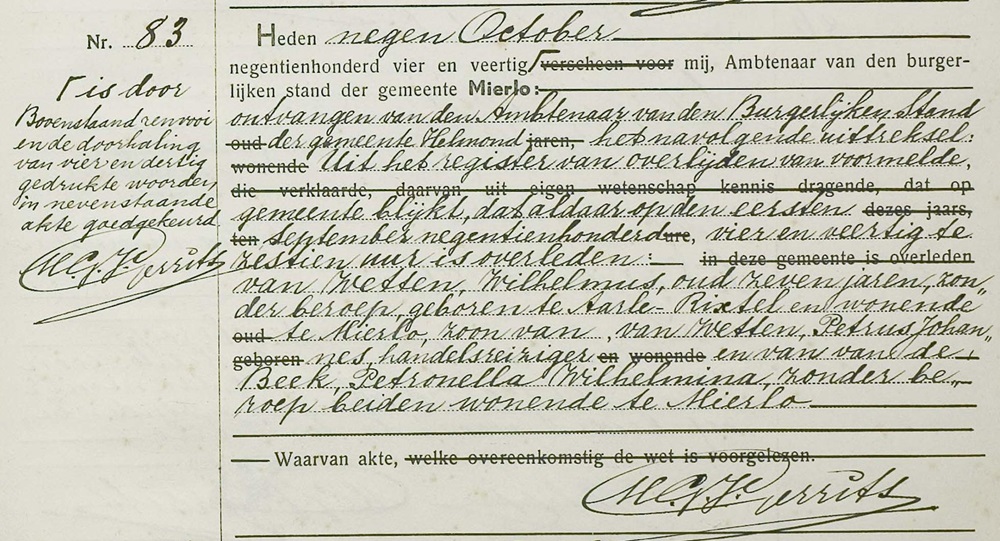 Nr. 83
Γ is door
Bovenstaand renvooi
en de doorhaling
van vier en dertig
gedrukte woorden
in nevenstaande
akte goedgekeurd
Gerrits
Heden negen October
negentienhonderd vier en veertig Γ verscheen voor mij, Ambtenaar van den burger-
lijken stand der gemeente Mierlo:
ontvangen van den Ambtenaar van den Burgerlijken Stand
oud der gemeente Helmond jaren, het navolgende uittreksel:
wonende Uit het register van overlijden van voormelde,
die verklaarde, daarvan uit eigen wetenschap kennis dragende, dat op
gemeente blijkt, dat aldaar op den eersten dezes jaars,
ten September negentienhonderd ure, vier en veertig te
zestien uur is overleden: in deze gemeente is overleden
van Wetten, Wilhelmus, oud zeven jaren, zon„
der beroep, geboren te Aarle-Rixtel en wonende
oud te Mierlo, zoon van, van Wetten, Petrus Johan„
geboren nes, handelsreiziger en wonende en van van de
Beek, Petronella Wilhelmina, zonder be„
roep, beiden wonende te Mierlo
Waarvan akte, welke overeenkomstig de wet is voorgelezen.
Gerrits